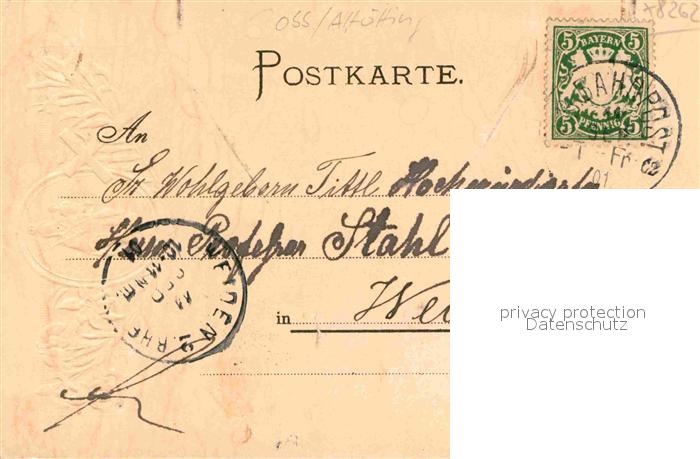 OSS/Altötting
x8262
POSTKARTE.
5 BAYERN 5
5 PFENNIG 5
BAHNPOST
01
An
Sr Wohlgeborn Tittl. Hochwürden
Herrn Stahl
in We
WEIDEN
privacy protection
Datenschutz